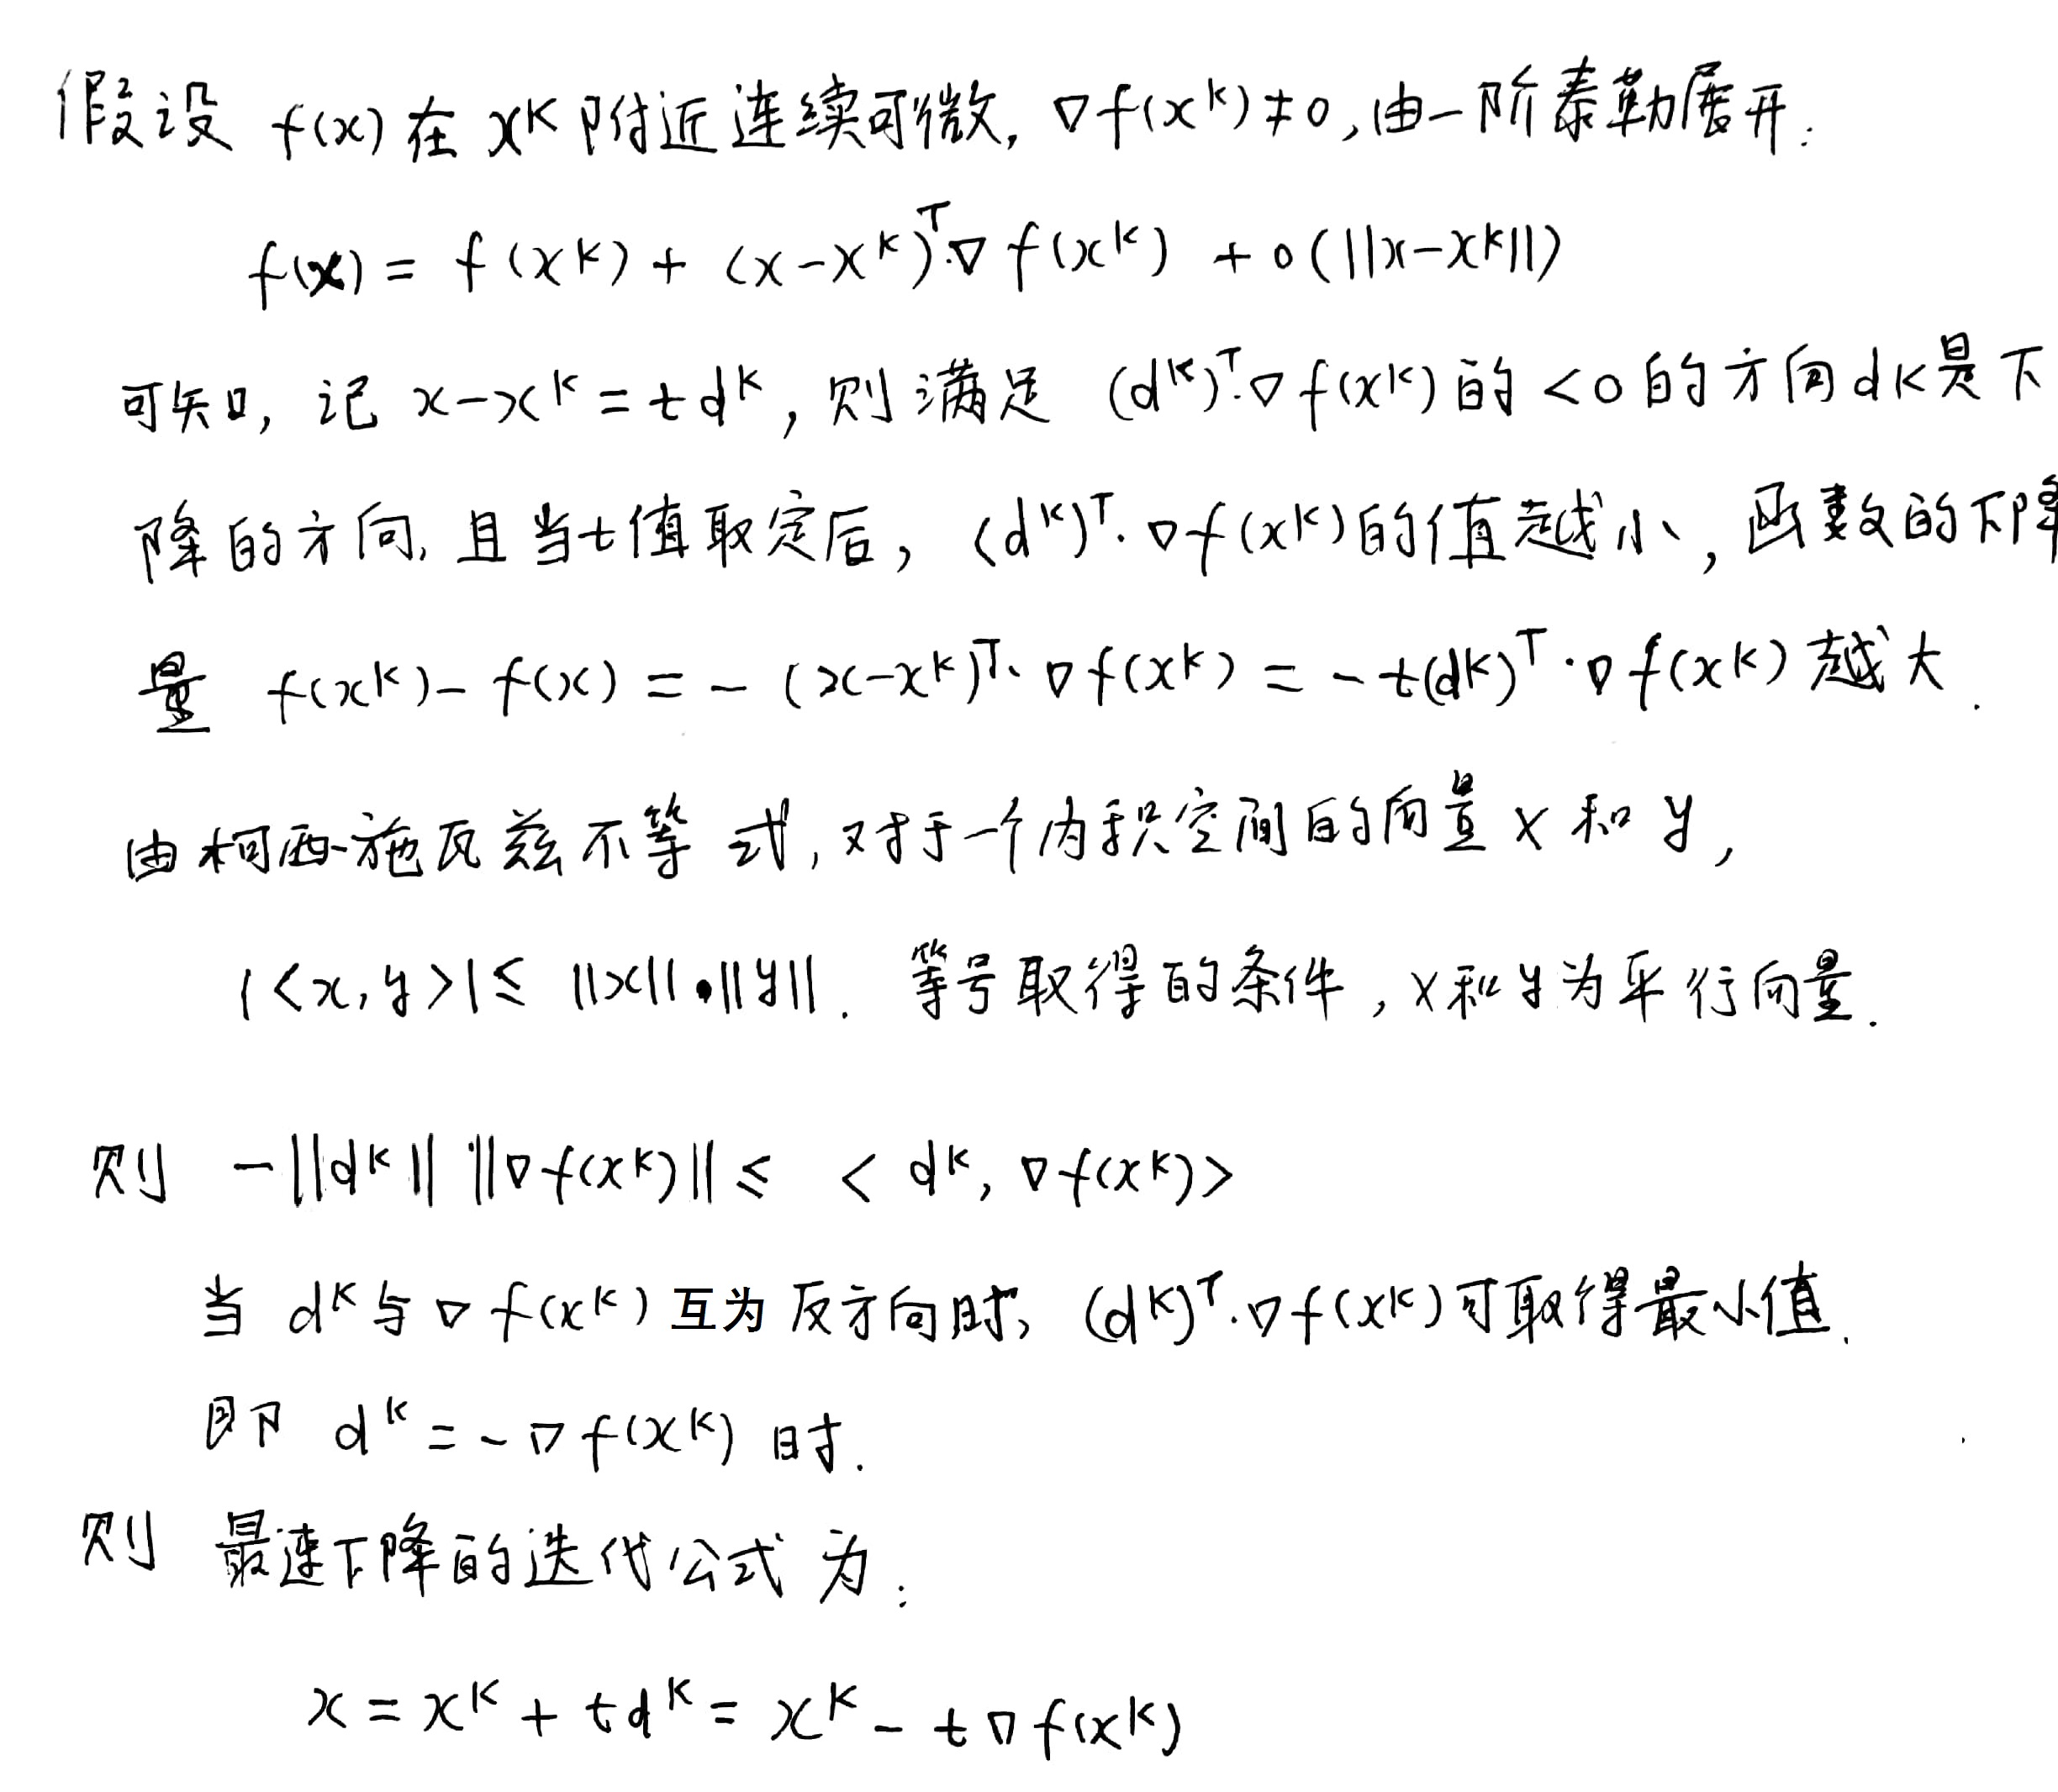 假设 f(x) 在 x^k 附近连续可微, ∇f(x^k)≠0, 由一阶泰勒展开:
f(x) = f(x^k) + (x-x^k)^T·∇f(x^k) + o(||x-x^k||)
可知, 记 x-x^k = td^k, 则满足 (d^k)^T·∇f(x^k)的 <0的方向dk是下
降的方向, 且当t值取定后, (d^k)^T·∇f(x^k)的值越小, 函数的下降
量 f(x^k)-f(x) = -(x-x^k)^T·∇f(x^k) = -t(d^k)^T·∇f(x^k) 越大.
由柯西-施瓦兹不等式, 对于一个内积空间的向量 x 和 y,
|<x,y>| ≤ ||x||·||y||. 等号取得的条件, x和y为平行向量.
则 -||d^k|| ||∇f(x^k)|| ≤ <d^k, ∇f(x^k)>
当 d^k与∇f(x^k) 互为反方向时, (d^k)^T·∇f(x^k)可取得最小值.
即 d^k = -∇f(x^k) 时.
则 最速下降的迭代公式为:
x = x^k + td^k = x^k - t∇f(x^k)